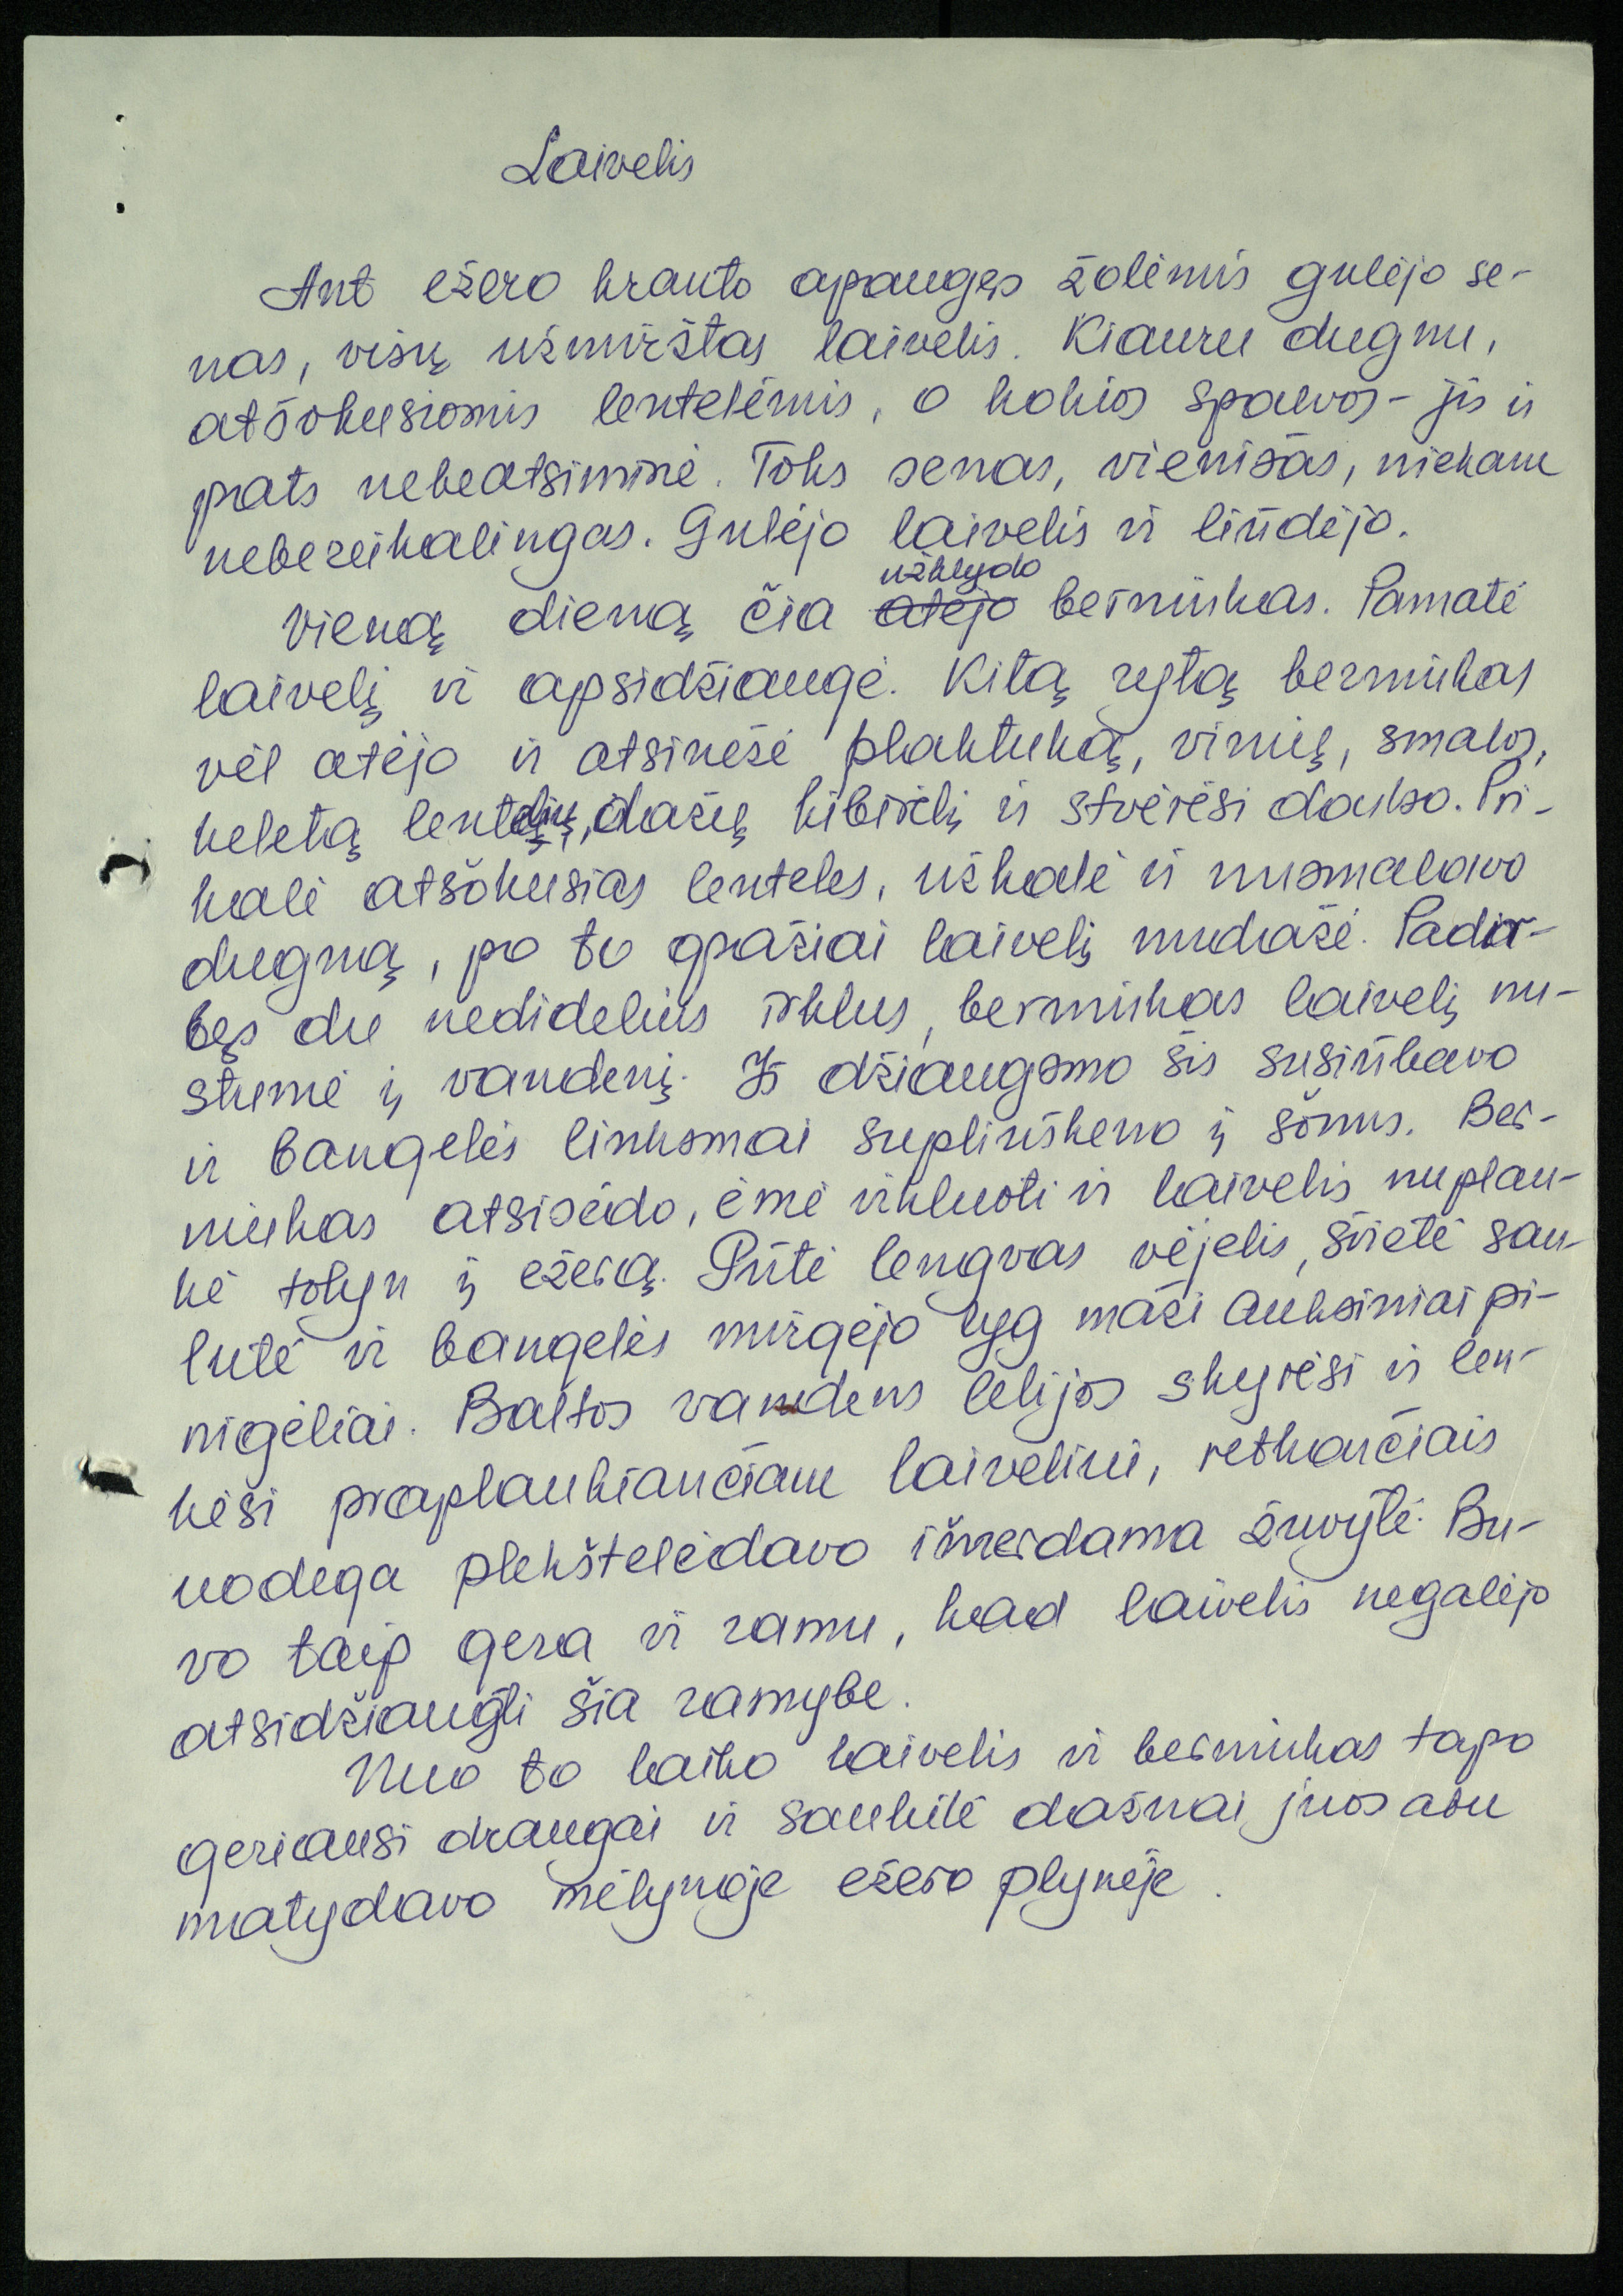 Laivelis
Ant ežero kranto apaugęs žolėmis gulėjo se-
nas, visų užmirštas laivelis. Kiauru dugnu,
atšokusiomis lentelėmis, o kokios spalvos - jis ir
pats nebeatsiminė. Toks senas, vienišas, niekam
nebereikalingas. Gulėjo laivelis ir liūdėjo.
užklydo
Vieną dieną čia atėjo berniukas. Pamatė
laivelį ir apsidžiaugė. Kitą rytą berniukas
vėl atėjo ir atsinešė plaktuką, vinių, smalos,
keletą lentelių, dažų kibirėlį ir stvėrėsi darbo. Pri-
kalė atšokusias lenteles, užkalė ir nusmalavo
dugną, po to gražiai laivelį nudažė. Padir-
bęs du nedidelius irklus, berniukas laivelį nu-
stūmė į vandenį. Iš džiaugsmo šis susiūbavo
ir bangelės linksmai supliuškeno į šonus. Ber-
niukas atsisėdo, ėmė irkluoti ir laivelis nuplau-
kė tolyn į ežerą. Pūtė lengvas vėjelis, švietė sau-
lutė ir bangelės mirgėjo lyg maži auksiniai pi-
nigėliai. Baltos vandens lelijos skyrėsi ir len-
kėsi praplaukiančiam laiveliui, retkarčiais
uodega plekštelėdavo išnerdama žuvytė. Bu-
vo taip gera ir ramu, kad laivelis negalėjo
atsidžiaugti šia ramybe.
Nuo to laiko laivelis ir berniukas tapo
geriausi draugai ir saulutė dažnai juos abu
matydavo mėlynoje ežero plynėje.